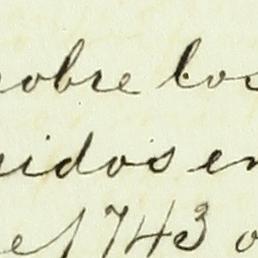 sobre los
uidos en
el 1743 o